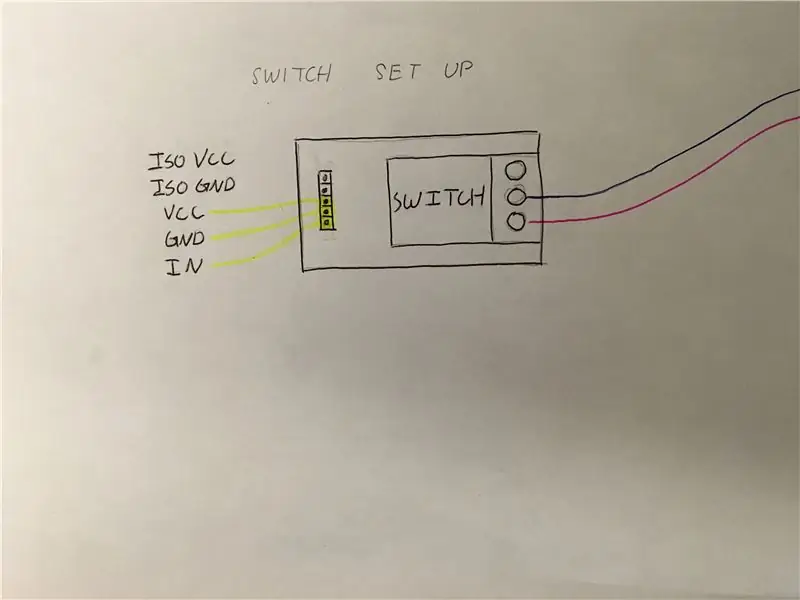 SWITCH SET UP
ISO VCC
ISO GND
VCC
GND
IN
SWITCH